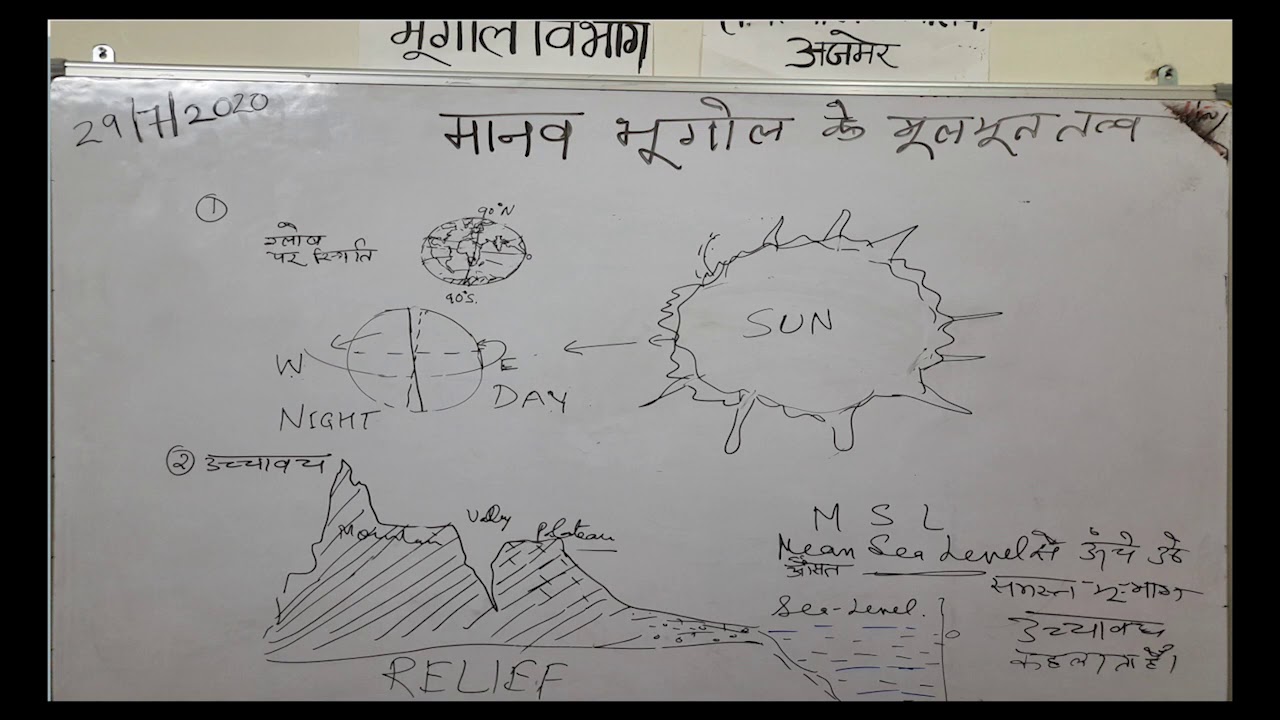 भूगोल विभाग
अजमेर
29/7/2020
मानव भूगोल के मूलभूत तत्व
①
ग्लोब
पर स्थिति
90°N
0
90°S.
SUN
W
E
NIGHT
DAY
② उच्चावच
Mountain
Valley
Plateau
RELIEF
M S L
Mean Sea Level से ऊँचे उठे
औसत
समस्त भू-भाग
Sea-Level.
उच्चावच
0
कहलाता है।